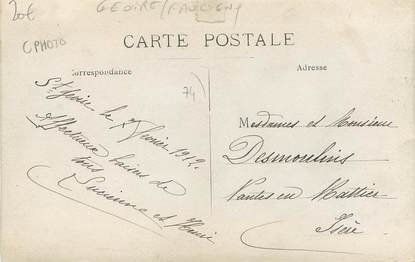 20€
GEOIRE/(FAUCIGNY
CPHOTO
CARTE POSTALE
Correspondance
Adresse
74
St Geoire le 7 février 1912.
Affectueux baisers de
tous
Lucienne et Henri
Mesdames et Monsieur
Desmoulins
Nantes en Rattier
Isère